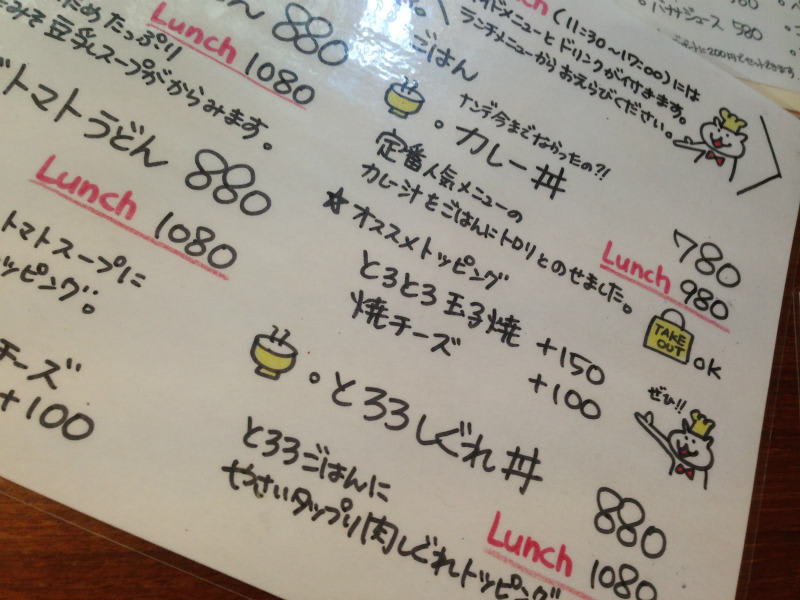 880
だめたっぷり
豆乳スープがからみます。
Lunch 1080
トマトうどん 880
Lunch 1080
トマトスープに
ッピング。
チーズ
+100
Lunch (11:30~17:00)には
ドメニューとドリンクが付きます。
ランチメニューからおえらびください。
ごはん
ナンデ今までなかったの?!
カレー丼
定番人気メニューの
カレー汁をごはんにトロリとのせました。
780
Lunch 980
★オススメトッピング
とろとろ玉子焼 +150
焼チーズ +100
TAKE OUT OK
ぜひ!!
とろろしぐれ丼
とろろごはんに
やさいタップリ肉しぐれトッピング
880
Lunch 1080
バナナジュース 580